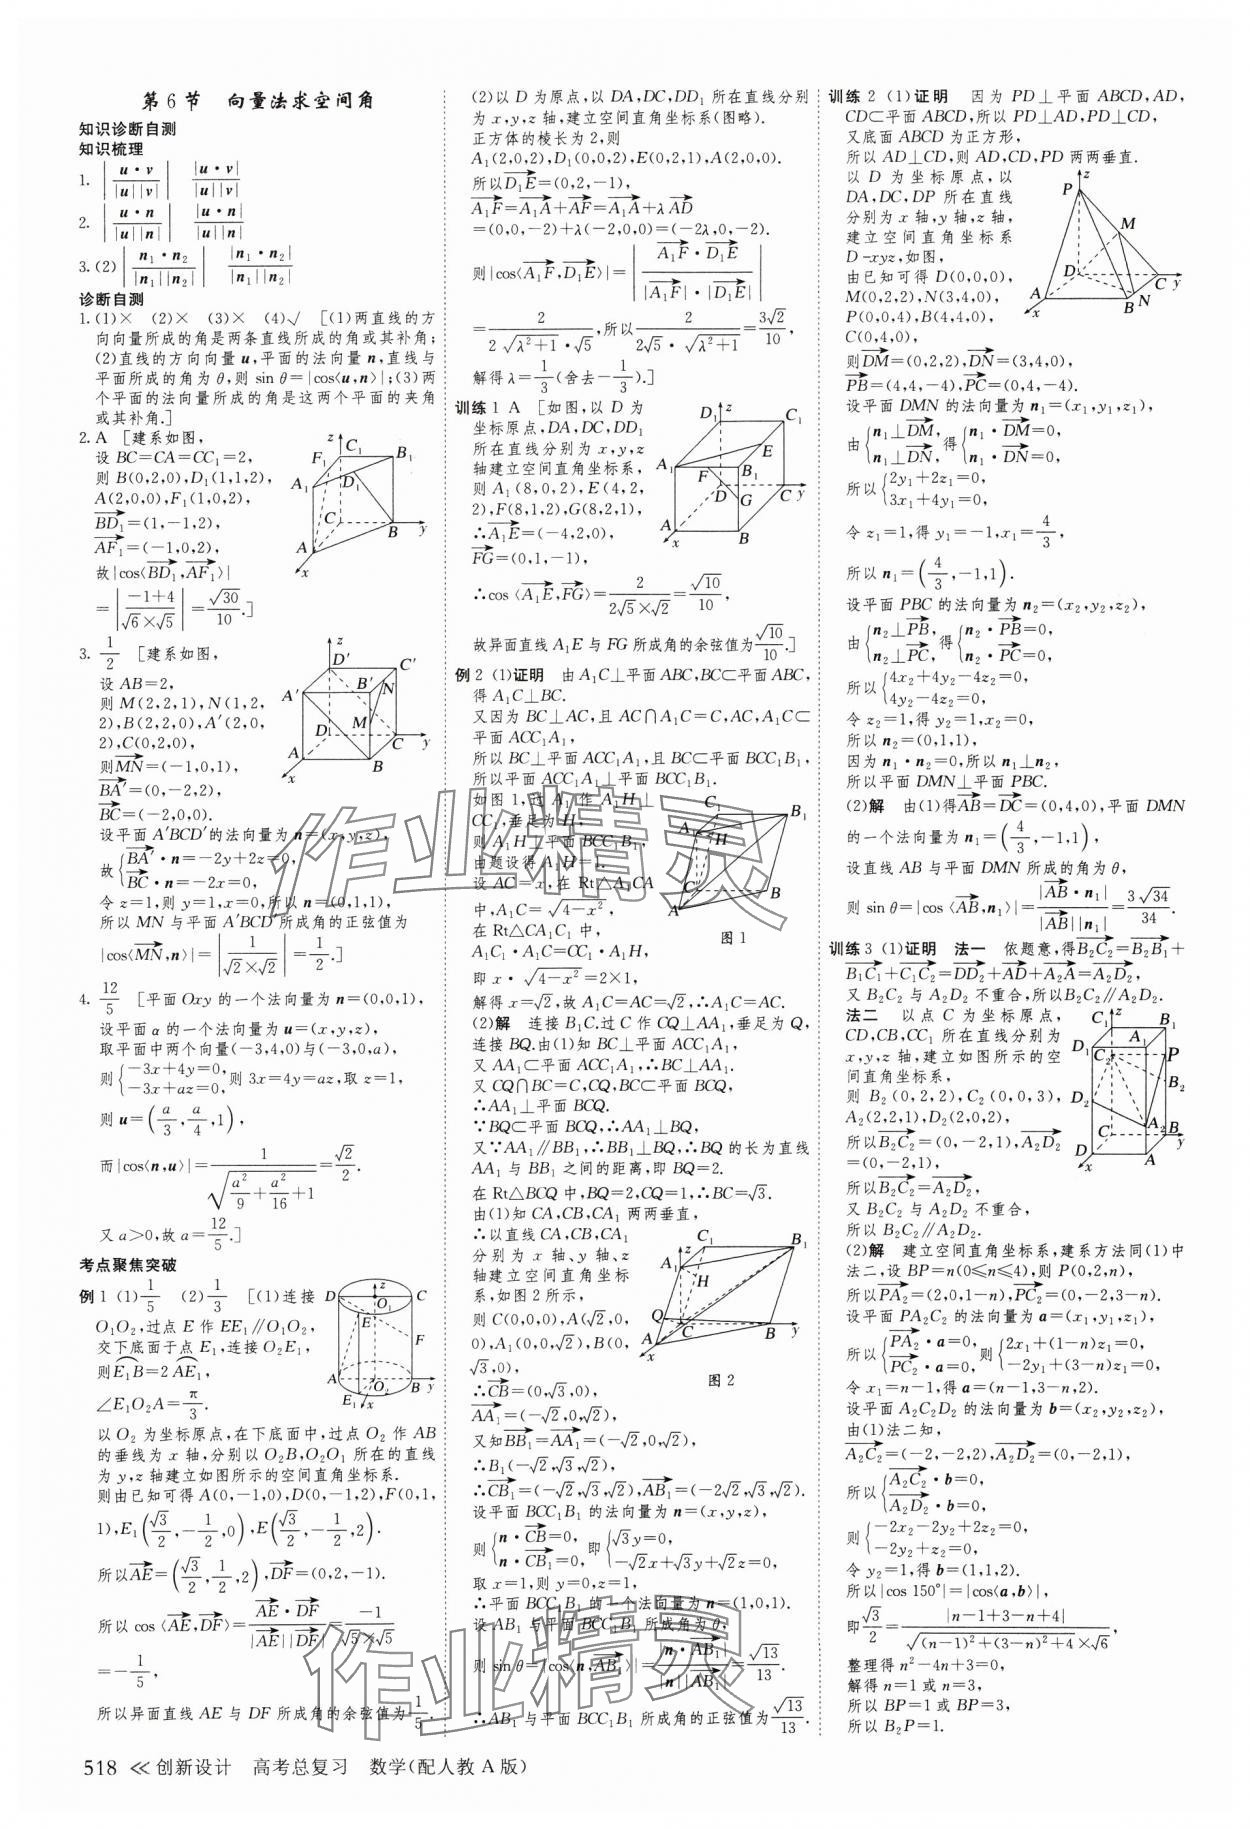 第6节　向量法求空间角
知识诊断自测
知识梳理
1. |u·v/(|u||v|)|　|u·v|/(|u||v|)
2. |u·n/(|u||n|)|　|u·n|/(|u||n|)
3.(2) |n₁·n₂/(|n₁||n₂|)|　|n₁·n₂|/(|n₁||n₂|)
诊断自测
1.(1)×　(2)×　(3)×　(4)√　[(1)两直线的方
向向量所成的角是两条直线所成的角或其补角;
(2)直线的方向向量 u,平面的法向量 n,直线与
平面所成的角为 θ,则 sin θ=|cos⟨u,n⟩|;(3)两
个平面的法向量所成的角是这两个平面的夹角
或其补角.]
2. A　[建系如图,
设 BC=CA=CC₁=2,
则 B(0,2,0),D₁(1,1,2),
A(2,0,0),F₁(1,0,2),
BD₁=(1,-1,2),
AF₁=(-1,0,2),
故|cos⟨BD₁,AF₁⟩|
=|(-1+4)/(√6×√5)|=√30/10.]
3. 1/2　[建系如图,
设 AB=2,
则 M(2,2,1),N(1,2,
2),B(2,2,0),A'(2,0,
2),C(0,2,0),
则MN=(-1,0,1),
BA'=(0,-2,2),
BC=(-2,0,0).
设平面 A'BCD'的法向量为 n=(x,y,z),
故{BA'·n=-2y+2z=0,
BC·n=-2x=0,
令 z=1,则 y=1,x=0,所以 n=(0,1,1),
所以 MN 与平面 A'BCD'所成角的正弦值为
|cos⟨MN,n⟩|=|1/(√2×√2)|=1/2.]
4. 12/5　[平面 Oxy 的一个法向量为 n=(0,0,1),
设平面 α 的一个法向量为 u=(x,y,z),
取平面中两个向量(-3,4,0)与(-3,0,a),
则{-3x+4y=0,
-3x+az=0,则 3x=4y=az,取 z=1,
则 u=(a/3,a/4,1),
而|cos⟨n,u⟩|=1/√(a²/9+a²/16+1)=√2/2.
又 a>0,故 a=12/5.]
考点聚焦突破
例1 (1)1/5　(2)1/3　[(1)连接
O₁O₂,过点 E 作 EE₁∥O₁O₂,
交下底面于点 E₁,连接 O₂E₁,
则E₁B=2AE₁,
∠E₁O₂A=π/3.
以 O₂ 为坐标原点,在下底面中,过点 O₂ 作 AB
的垂线为 x 轴,分别以 O₂B,O₂O₁ 所在的直线
为 y,z 轴建立如图所示的空间直角坐标系.
则由已知可得 A(0,-1,0),D(0,-1,2),F(0,1,
1),E₁(√3/2,-1/2,0),E(√3/2,-1/2,2).
所以AE=(√3/2,1/2,2),DF=(0,2,-1).
所以 cos ⟨AE,DF⟩=AE·DF/(|AE||DF|)=-1/(√5×√5)
=-1/5,
所以异面直线 AE 与 DF 所成角的余弦值为1/5.
(2)以 D 为原点,以 DA,DC,DD₁ 所在直线分别
为 x,y,z 轴,建立空间直角坐标系(图略).
正方体的棱长为 2,则
A₁(2,0,2),D₁(0,0,2),E(0,2,1),A(2,0,0).
所以D₁E=(0,2,-1),
A₁F=A₁A+AF=A₁A+λAD
=(0,0,-2)+λ(-2,0,0)=(-2λ,0,-2).
则|cos⟨A₁F,D₁E⟩|=|A₁F·D₁E/(|A₁F|·|D₁E|)|
=2/(2√(λ²+1)·√5),所以2/(2√5·√(λ²+1))=3√2/10,
解得 λ=1/3(舍去-1/3).]
训练1 A　[如图,以 D 为
坐标原点,DA,DC,DD₁
所在直线分别为 x,y,z
轴建立空间直角坐标系,
则 A₁(8,0,2),E(4,2,
2),F(8,1,2),G(8,2,1),
∴A₁E=(-4,2,0),
FG=(0,1,-1),
∴cos ⟨A₁E,FG⟩=2/(2√5×√2)=√10/10,
故异面直线 A₁E 与 FG 所成角的余弦值为√10/10.]
例2 (1)证明　由 A₁C⊥平面 ABC,BC⊂平面 ABC,
得 A₁C⊥BC.
又因为 BC⊥AC,且 AC∩A₁C=C,AC,A₁C⊂
平面 ACC₁A₁,
所以 BC⊥平面 ACC₁A₁,且 BC⊂平面 BCC₁B₁,
所以平面 ACC₁A₁⊥平面 BCC₁B₁.
如图1,过 A₁作 A₁H⊥
CC₁,垂足为 H,
则 A₁H⊥平面 BCC₁B₁,
由题设得 A₁H=1.
设 AC=x,在 Rt△A₁CA
中,A₁C=√(4-x²),
在 Rt△CA₁C₁ 中,
A₁C₁·A₁C=CC₁·A₁H,
即 x·√(4-x²)=2×1,
解得 x=√2,故 A₁C=AC=√2,∴A₁C=AC.
图1
(2)解　连接 B₁C.过 C 作 CQ⊥AA₁,垂足为 Q,
连接 BQ.由(1)知 BC⊥平面 ACC₁A₁,
又 AA₁⊂平面 ACC₁A₁,∴BC⊥AA₁.
又 CQ∩BC=C,CQ,BC⊂平面 BCQ,
∴AA₁⊥平面 BCQ.
∵BQ⊂平面 BCQ,∴AA₁⊥BQ,
又∵AA₁∥BB₁,∴BB₁⊥BQ,∴BQ 的长为直线
AA₁ 与 BB₁ 之间的距离,即 BQ=2.
在 Rt△BCQ 中,BQ=2,CQ=1,∴BC=√3.
由(1)知 CA,CB,CA₁ 两两垂直,
∴以直线 CA,CB,CA₁
分别为 x 轴、y 轴、z
轴建立空间直角坐标
系,如图2所示,
则 C(0,0,0),A(√2,0,
0),A₁(0,0,√2),B(0,
√3,0),
∴CB=(0,√3,0),
AA₁=(-√2,0,√2),
图2
又知BB₁=AA₁=(-√2,0,√2),
∴B₁(-√2,√3,√2),
∴CB₁=(-√2,√3,√2),AB₁=(-2√2,√3,√2).
设平面 BCC₁B₁ 的法向量为 n=(x,y,z),
则{n·CB=0,
n·CB₁=0,即{√3y=0,
-√2x+√3y+√2z=0,
取 x=1,则 y=0,z=1,
∴平面 BCC₁B₁ 的一个法向量为 n=(1,0,1).
设 AB₁ 与平面 BCC₁B₁ 所成角为 θ,
则 sin θ=|cos⟨n,AB₁⟩|=|n·AB₁|/(|n||AB₁|)=√13/13.
∴AB₁ 与平面 BCC₁B₁ 所成角的正弦值为√13/13.
训练2 (1)证明　因为 PD⊥平面 ABCD,AD,
CD⊂平面 ABCD,所以 PD⊥AD,PD⊥CD,
又底面 ABCD 为正方形,
所以 AD⊥CD,则 AD,CD,PD 两两垂直.
以 D 为坐标原点,以
DA,DC,DP 所在直线
分别为 x 轴,y 轴,z 轴,
建立空间直角坐标系
D-xyz,如图,
由已知可得 D(0,0,0),
M(0,2,2),N(3,4,0),
P(0,0,4),B(4,4,0),
C(0,4,0),
则DM=(0,2,2),DN=(3,4,0),
PB=(4,4,-4),PC=(0,4,-4).
设平面 DMN 的法向量为 n₁=(x₁,y₁,z₁),
由{n₁⊥DM,
n₁⊥DN,得{n₁·DM=0,
n₁·DN=0,
所以{2y₁+2z₁=0,
3x₁+4y₁=0,
令 z₁=1,得 y₁=-1,x₁=4/3,
所以 n₁=(4/3,-1,1).
设平面 PBC 的法向量为 n₂=(x₂,y₂,z₂),
由{n₂⊥PB,
n₂⊥PC,得{n₂·PB=0,
n₂·PC=0,
所以{4x₂+4y₂-4z₂=0,
4y₂-4z₂=0,
令 z₂=1,得 y₂=1,x₂=0,
所以 n₂=(0,1,1),
因为 n₁·n₂=0,所以 n₁⊥n₂,
所以平面 DMN⊥平面 PBC.
(2)解　由(1)得AB=DC=(0,4,0),平面 DMN
的一个法向量为 n₁=(4/3,-1,1),
设直线 AB 与平面 DMN 所成的角为 θ,
则 sin θ=|cos ⟨AB,n₁⟩|=|AB·n₁|/(|AB||n₁|)=3√34/34.
训练3 (1)证明　法一　依题意,得B₂C₂=B₂B₁+
B₁C₁+C₁C₂=DD₂+AD+A₂A=A₂D₂,
又 B₂C₂ 与 A₂D₂ 不重合,所以B₂C₂∥A₂D₂.
法二　以点 C 为坐标原点,
CD,CB,CC₁ 所在直线分别为
x,y,z 轴,建立如图所示的空
间直角坐标系,
则 B₂(0,2,2),C₂(0,0,3),
A₂(2,2,1),D₂(2,0,2),
所以B₂C₂=(0,-2,1),A₂D₂
=(0,-2,1),
所以B₂C₂=A₂D₂,
又 B₂C₂ 与 A₂D₂ 不重合,
所以 B₂C₂∥A₂D₂.
(2)解　建立空间直角坐标系,建系方法同(1)中
法二,设 BP=n(0≤n≤4),则 P(0,2,n),
所以PA₂=(2,0,1-n),PC₂=(0,-2,3-n).
设平面 PA₂C₂ 的法向量为 a=(x₁,y₁,z₁),
所以{PA₂·a=0,
PC₂·a=0,则{2x₁+(1-n)z₁=0,
-2y₁+(3-n)z₁=0,
令 x₁=n-1,得 a=(n-1,3-n,2).
设平面 A₂C₂D₂ 的法向量为 b=(x₂,y₂,z₂),
由(1)法二知,
A₂C₂=(-2,-2,2),A₂D₂=(0,-2,1),
所以{A₂C₂·b=0,
A₂D₂·b=0,
则{-2x₂-2y₂+2z₂=0,
-2y₂+z₂=0,
令 y₂=1,得 b=(1,1,2).
所以|cos 150°|=|cos⟨a,b⟩|,
即√3/2=|n-1+3-n+4|/(√((n-1)²+(3-n)²+4)×√6),
整理得 n²-4n+3=0,
解得 n=1 或 n=3,
所以 BP=1 或 BP=3,
所以 B₂P=1.
518 ≪创新设计　高考总复习　数学(配人教A版)
作业精灵
作业精灵